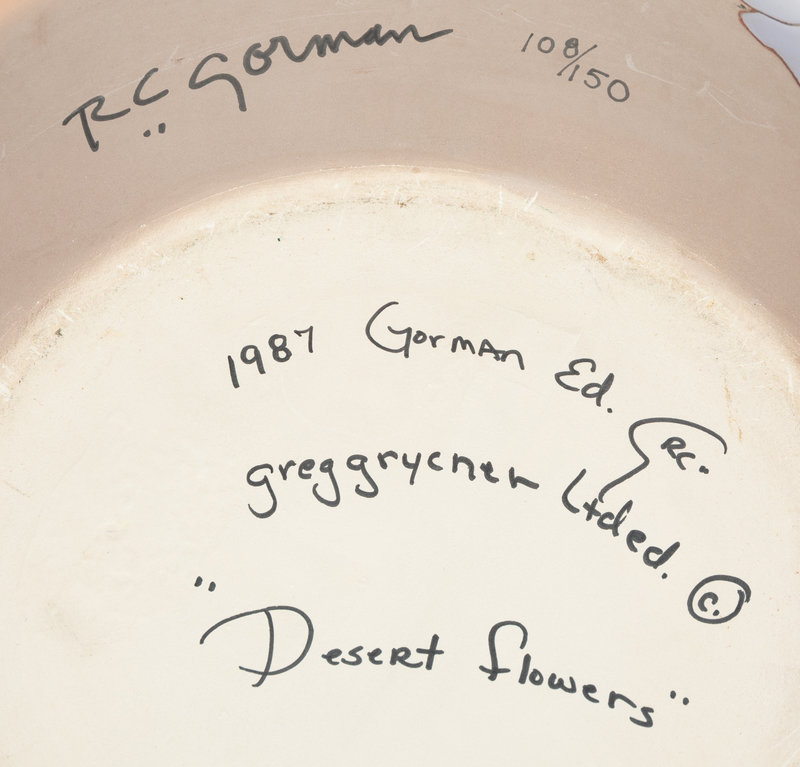 R.C. Gorman 108/150
1987 Gorman Ed. RC.
greggrycner Ltded. ©
"Desert flowers"